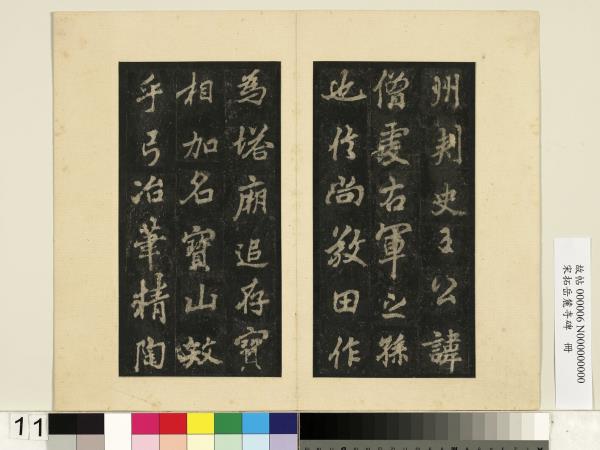 州刺史王公諱
僧虔右軍之孫
也信尚敬田作
為塔廟追存寶
相加名寶山效
乎弓冶筆精陶
故帖 000006 N000000000
宋拓岳麓寺碑 冊
11